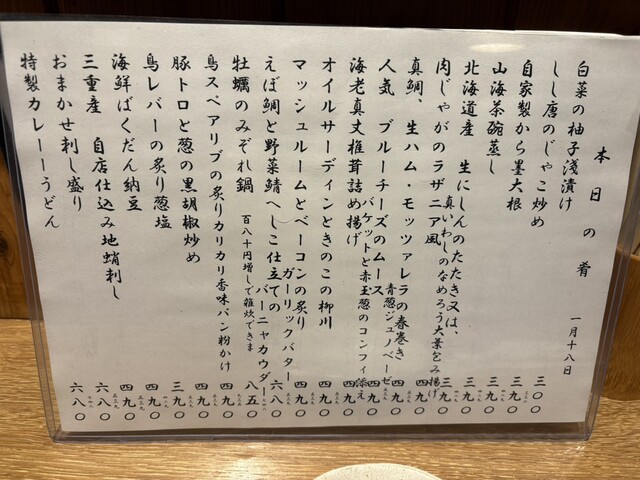 本日の肴 一月十八日
白菜の柚子浅漬け 三〇〇
しし唐のじゃこ炒め 三九〇
自家製から墨大根 三九〇
山海茶碗蒸し 四九〇
北海道産 生にしんのたたき又は、
真いわしのなめろう大葉包み揚げ 三九〇
肉じゃがのラザニア風 四九〇
真鯛、生ハム・モッツァレラの春巻き
青葱ジュノベーゼ 四九〇
人気 ブルーチーズのムース
バケットと赤玉葱のコンフィ添え 四九〇
海老真丈椎茸詰め揚げ 四九〇
オイルサーディンときのこの柳川 四九〇
マッシュルームとベーコンの炙り
ガーリックバター 四九〇
えぼ鯛と野菜鯖へしこ仕立ての
バーニャカウダー 六八〇
牡蠣のみぞれ鍋 百八十円増しで雑炊できま 八五〇
鳥スペアリブの炙りカリカリ香味パン粉かけ 四九〇
豚トロと葱の黒胡椒炒め 三九〇
鳥レバーの炙り葱塩 四九〇
海鮮ばくだん納豆 四九〇
三重産 自店仕込み地蛸刺し 六八〇
おまかせ刺し盛り
特製カレーうどん 六八〇